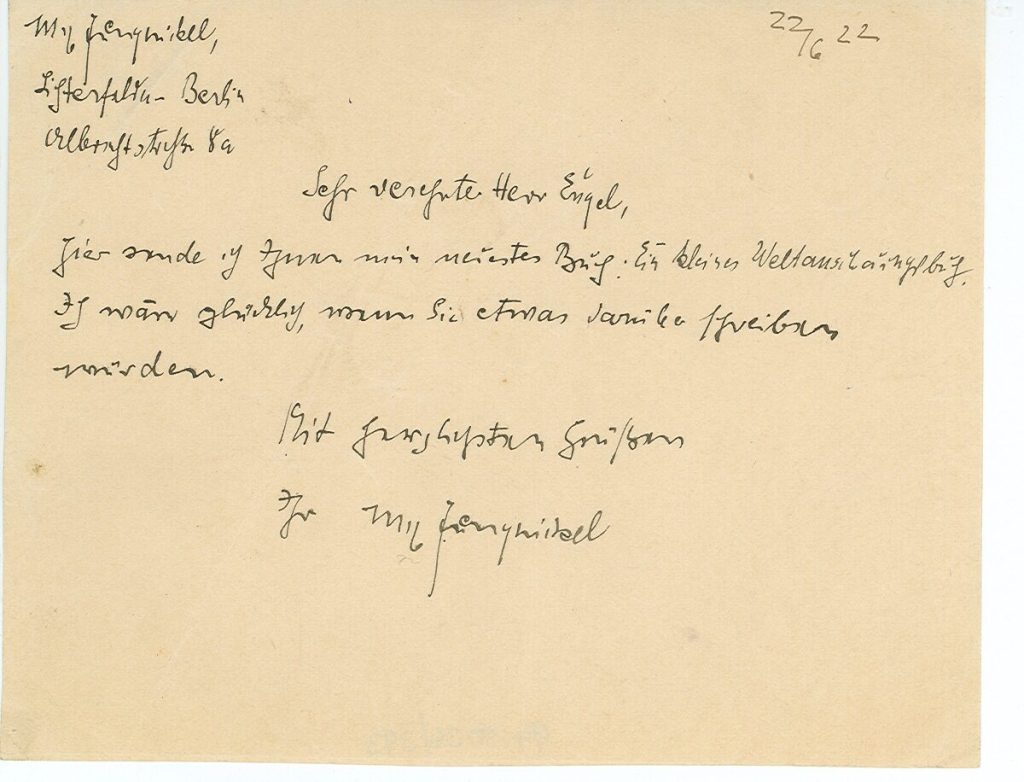 Max Jungnickel,
22/6 22
Lichterfelde-Berlin
Albrechtstraße 8a
Sehr verehrter Herr Engel,
hier sende ich Ihnen mein neuestes Buch: Ein kleines Weltanschauungsbuch.
Ich wäre glücklich, wenn Sie etwas darüber schreiben
würden.
Mit herzlichsten Grüßen
Ihr Max Jungnickel